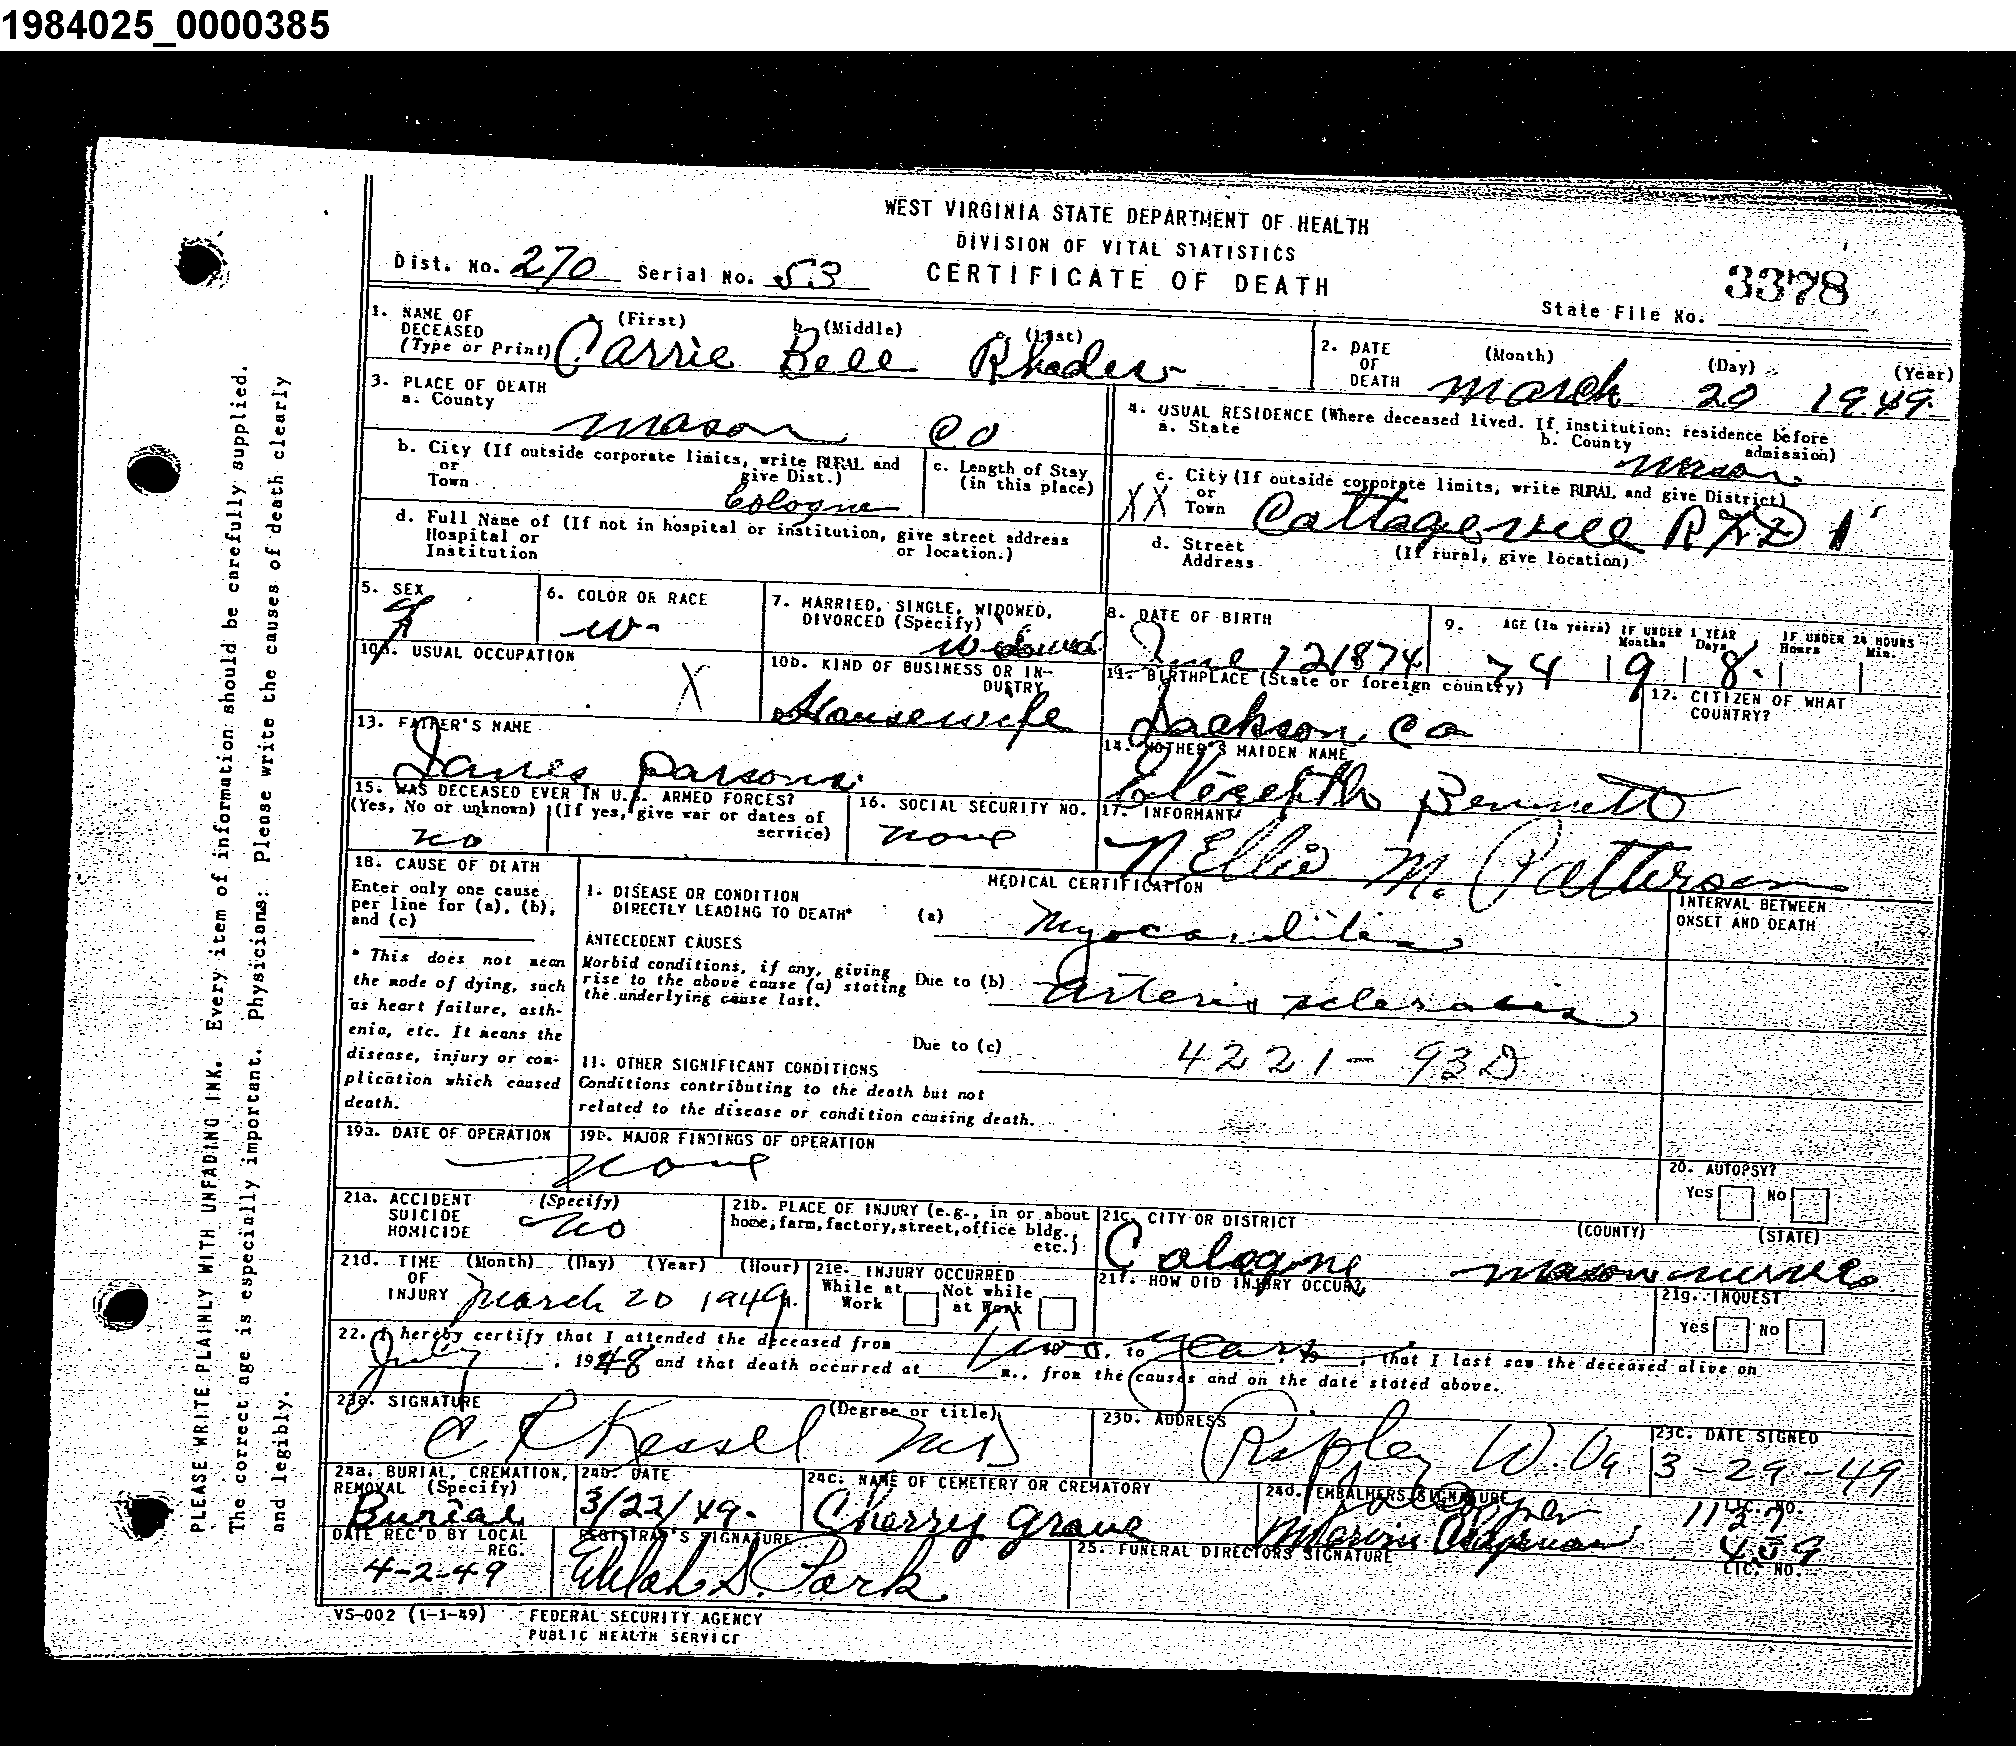 1984025_0000385
WEST VIRGINIA STATE DEPARTMENT OF HEALTH
DIVISION OF VITAL STATISTICS
CERTIFICATE OF DEATH
Dist. No. 270 Serial No. 53
3378
State File No.
1. NAME OF DECEASED (Type or Print)
a. (First) b. (Middle) c. (Last)
Carrie Bell Rhodes
2. DATE OF DEATH (Month) (Day) (Year)
March 20 1949.
3. PLACE OF DEATH
a. County
Mason Co
b. City (If outside corporate limits, write RURAL and give Dist.)
or Town
Cologne
c. Length of Stay (in this place)
d. Full Name of (If not in hospital or institution, give street address or location.)
Hospital or Institution
4. USUAL RESIDENCE (Where deceased lived. If institution: residence before admission)
a. State
b. County
Mason
c. City (If outside corporate limits, write RURAL and give District)
or Town
XX Cottageville RFD 1
d. Street Address
(If rural, give location)
5. SEX
F
6. COLOR OR RACE
W
7. MARRIED, SINGLE, WIDOWED, DIVORCED (Specify)
Widowed
8. DATE OF BIRTH
June 12 1874
9. AGE (In years) IF UNDER 1 YEAR Months Days IF UNDER 24 HOURS Hours Min.
74 9 8
10a. USUAL OCCUPATION
X
10b. KIND OF BUSINESS OR INDUSTRY
Housewife
11. BIRTHPLACE (State or foreign country)
Jackson Co
12. CITIZEN OF WHAT COUNTRY?
13. FATHER'S NAME
James Parsons
14. MOTHER'S MAIDEN NAME
Bennett
15. WAS DECEASED EVER IN U.S. ARMED FORCES?
(Yes, No or unknown) (If yes, give war or dates of service)
no
16. SOCIAL SECURITY NO.
none
17. INFORMANT
Nellie M. Patterson
18. CAUSE OF DEATH
Enter only one cause per line for (a), (b), and (c)
* This does not mean the mode of dying, such as heart failure, asthenia, etc. It means the disease, injury or complication which caused death.
MEDICAL CERTIFICATION
INTERVAL BETWEEN ONSET AND DEATH
1. DISEASE OR CONDITION DIRECTLY LEADING TO DEATH* (a) Myocarditis
ANTECEDENT CAUSES
Morbid conditions, if any, giving rise to the above cause (a) stating the underlying cause last.
Due to (b) Arterio sclerosis
Due to (c)
4221 - 93D
11. OTHER SIGNIFICANT CONDITIONS
Conditions contributing to the death but not related to the disease or condition causing death.
19a. DATE OF OPERATION
19b. MAJOR FINDINGS OF OPERATION
none
20. AUTOPSY?
Yes No
21a. ACCIDENT SUICIDE HOMICIDE (Specify)
no
21b. PLACE OF INJURY (e.g., in or about home, farm, factory, street, office bldg., etc.)
21c. CITY OR DISTRICT (COUNTY) (STATE)
Cologne Mason
21d. TIME OF INJURY (Month) (Day) (Year) (Hour)
March 20 1949
21e. INJURY OCCURRED
While at Work Not while at Work
21f. HOW DID INJURY OCCUR?
21g. INQUEST
Yes No
22. I hereby certify that I attended the deceased from Two to years, 19, that I last saw the deceased alive on
July, 1948 and that death occurred at m., from the causes and on the date stated above.
23a. SIGNATURE (Degree or title)
C R Kessel MD
23b. ADDRESS
Ripley W. Va
23c. DATE SIGNED
3-29-49
24a. BURIAL, CREMATION, REMOVAL (Specify)
Burial
24b. DATE
3/22/49.
24c. NAME OF CEMETERY OR CREMATORY
Cherry grove
24d. EMBALMERS SIGNATURE
LIC. NO.
DATE REC'D BY LOCAL REG.
4-2-49
REGISTRAR'S SIGNATURE
25. FUNERAL DIRECTORS SIGNATURE
Marvin Casto
459
LIC. NO.
VS-002 (1-1-49) FEDERAL SECURITY AGENCY
PUBLIC HEALTH SERVICE
PLEASE WRITE PLAINLY WITH UNFADING INK. Every item of information should be carefully supplied.
The correct age is especially important. Physicians: Please write the causes of death clearly
and legibly.